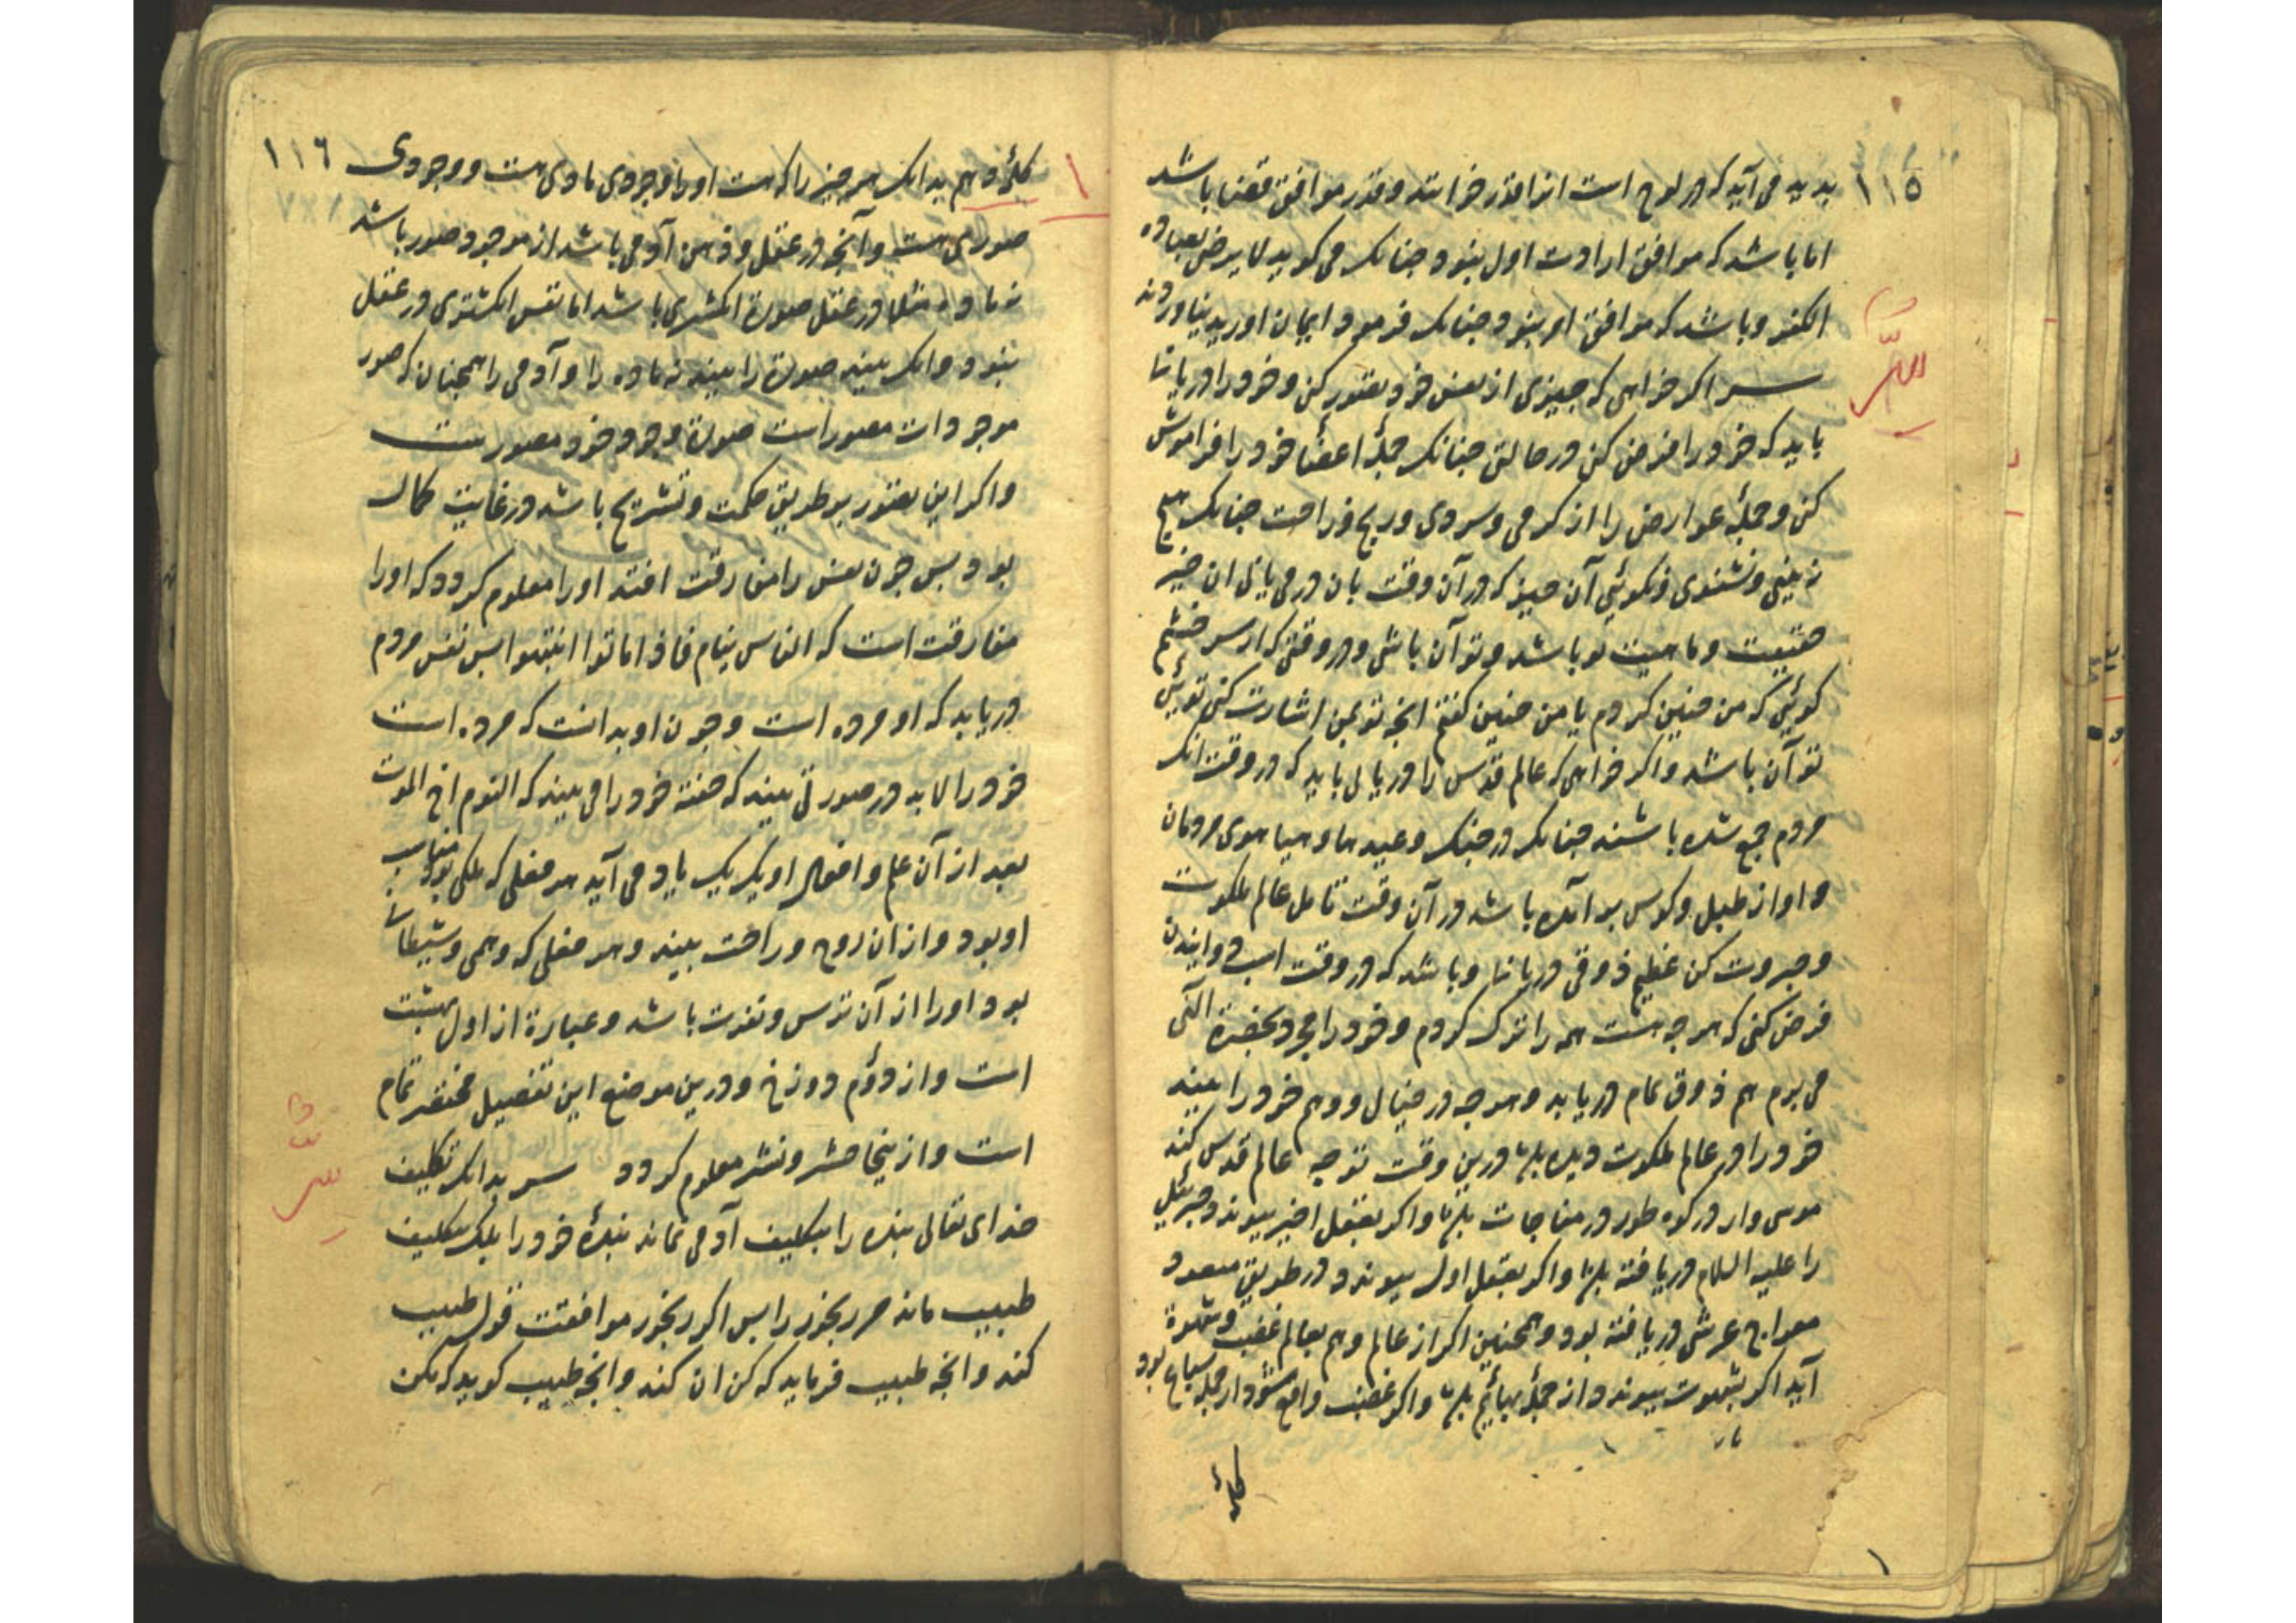 ١١٥
بدید می آید که در لوح است انرا قدر خوانند و قدر موافق قضا باشد
اما باشد که موافق ارادت اول نبود چنانک می کوید لا یرضی لعباده
الکفر و باشد که موافق امر نبود چنانک فرمود ایمان اورید نیاوردند
سر اکر خواهی که چیزی از نفس خود تصور کنی و خود را دریابی
باید که خود را فرض کنی در حالتی چنانک جملهٔ اعضا خود را فراموش
کنی و جملهٔ عوارض را از کرمی و سردی و رنج و راحت چنانک هیچ
نه بینی و نشنوی و نکوئی آن چیز که در آن وقت بان در می یابی ان چیز
حقیقت و ماهیت تو باشد و تو آن باشی و در وقتی که از سر خشم
کوئی که من چنین کردم یا من چنین کفتم انچه تو بمن اشارت کنی توئی
تو آن باشد و اکر خواهی که عالم قدس را دریابی باید که در وقت انک
مردم جمع شده باشند چنانک در جنک و عیدها و هیاهوی مردمان
و اواز طبل و کوس بر آمده باشد در آن وقت تامل عالم ملکوت
و جبروت کن عظیم ذوقی دریابی و باشد که در وقت اسپ دوانیدن
فرض کنی که هر چه هست همه را ترک کردم و خود را مجرد بحضرة الهی
می برم هم ذوق تمام دریابد و هر چه در خیال و وهم خود را بیند
خود را در عالم ملکوت دیده باشد درین وقت توجه عالم قدس کند
موسی وار در کوه طور در مناجات باشد و اکر بعقل اخیر پیوندد جبرئیل
را علیه السلام دریافته باشد و اکر بعقل اول پیوندد در طریق صعود
معراج عرشی دریافته بود و همچنین اکر از عالم وهم بعالم غضب و شهوة
آید اکر بشهوت پیوندد از جملهٔ بهائم باشد و اکر غضب واقع شود از جمله سباع بود
کلمهٔ
١١٦
کلمهٔ دهم بدانک هر چیز را که هست او را وجودی مادی هست و وجودی
صوری هست و آنچه در عقل و ذهن آدمی باشد از موجود صور باشد
نه ماده مثلا در عقل صورة انکشتری باشد اما نفس انکشتری در عقل
نبود و انک بیند صورة را بیند نه ماده را و آدمی را همچنان که صور
موجودات مصور است صورة وجود خود مصور هست
و اکر این تصور بر طریق حکمت و تشریح باشد در غایت کمال
بود پس چون نفس را مفارقت افتد او را معلوم کردد که او را
مفارقت است که الناس نیام فاذا ماتوا انتبهوا پس نفس مردم
دریابد که او مرده است و چون او بدانست که مرده است
خود را لابد در صورتی بیند که خفته خود را می بیند که النوم اخ الموت
بعد از آن علم و افعال او یک یک یاد می آید هر فعلی که ملکی بود مناسب
او بود و از ان روح و راحت بیند و هر فعلی که وهمی و شیطانی
بود او را از آن ترس و نفرت باشد و عبارة از اول بهشت
است و از دوم دوزخ و درین موضع این تفصیل مختصر تمام
است و از ینجا حشر و نشر معلوم کردد سر بدانک تکلیف
خدای تعالی بنده را بتکلیف آدمی نماند بندهٔ خود را بلک بتکلیف
طبیب ماند مر رنجور را پس اکر رنجور موافقت قول طبیب
کند و انچه طبیب فرماید که کن ان کند و انچه طبیب کوید که مکن
سر